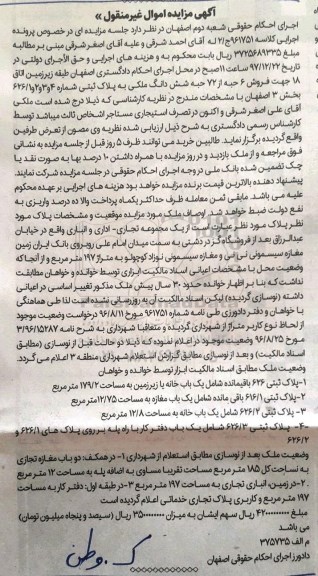 آگهی مزایده اموال غیرمنقول »
اجرای احکام حقوقی شعبه دوم اصفهان در نظر دارد جلسه مزایده ای در خصوص پرونده
اجرایی کلاسه ۹۶۱۷۵۱ج/۲ له آقای احمد شرقی و علیه آقای اصغر شرقی مبنی بر مطالبه
مبلغ ۳۷۲۵۶۸۹۳۳۵ ریال بابت محکوم به و هزینه های اجرایی و حق الاجرای دولتی در
تاریخ ۹۷/۱۲/۲۲ ساعت ۱۱صبح در محل اجرای احکام دادگستری اصفهان طبقه زیرزمین اتاق
۱۸ جهت فروش ۶ حبه از ۷۲ حبه شش دانگ ملکی به پلاک ثبتی شماره ۴و۳و۲و۶۲۶/۱
بخش ۳ اصفهان با مشخصات مندرج در نظریه کارشناسی که ذیلا درج شده است ملکی
آقای علی اصغر شرقی و اکنون در تصرف استیجاری مستاجر اشخاص ثالث میباشد توسط
کارشناس رسمی دادگستری به شرح ذیل ارزیابی شده نظریه وی مصون از تعرض طرفین
واقع گردیده برگزار نماید. طالبین خرید می توانند ظرف ۵ روز قبل از جلسه مزایده به نشانی
فوق مراجعه و از ملک بازدید و در روز مزایده با همراه داشتن ۱۰ درصد بها به صورت نقد یا
چک تضمین شده بانک ملی در وجه اجرای احکام حقوقی در جلسه مزایده شرکت نمایند.
پیشنهاد دهنده بالاترین قیمت برنده مزایده خواهد بود هزینه های اجرایی بر عهده محکوم
علیه می باشد. مابقی ثمن معامله ظرف حداکثر یکماه پرداخت والا ده درصد واریزی به
نفع دولت ضبط خواهد شد. اوصاف ملک مورد مزایده موقعیت و مشخصات پلاک مورد
نظر پلاک مورد نظر عبارت است از یک مجموعه تجاری- اداری و انباری واقع در خیابان
عبدالرزاق بعد از فروشگاه گز دشتی به سمت میدان امام علی روبروی بانک ایران زمین
مغازه سیسمونی نی اس و مغازه سیسمونی نوزاد کوچولو به متراژ ۱۹۷ متر مربع و از آنجا که
وضعیت محل با مشخصات اعیانی اسناد مالکیت ابرازی توسط خوانده و خواهان مطابقت
نداشت که بنا بر اظهار خوانده حدود ۳۰ سال پیش ملک مذکور تغییر اساسی در اعیانی
داشته (نوسازی گردیده) لیکن اسناد مالکیت آن به روزرسانی نشده است لذا طی هماهنگی
با خواهان و دفتر دادورزی طی نامه شماره ۹۶۱۷۵۱ مورخ ۹۶/۸/۱۱ درخواست وضعیت موجود
از لحاظ نوع کاربر متراژ از شهرداری گردیده و متعاقبا شهرداری به شرح نامه ۳/۹۶/۱۵۲۸۷
مورخ ۹۶/۸/۲۵ وضعیت موجود در اعلام نموده که ذیلا دو حالت قبل از نوسازی (مطابق
اسناد مالکیت) و بعد از نوسازی مطابق گزارش استعلام شهرداری منطقه ۳ اعلام می گردد.
وضعیت ملک مطابق اسناد مالکیت ابراز توسط خوانده و خواهان
۱-پلاک ثبتی ۶۲۶ باقیمانده شامل یک باب خانه یا زیرزمین به مساحت ۱۷۹/۲ متر مربع
۲-پلاک ثبتی ۶۱۶/۱ باقی مانده شامل یک باب مغازه به مساحت ۱۲/۷۵متر مربع
۳- پلاک ثبتی ۶۲۶/۲ شامل یک باب خانه به مساحت ۱۲/۸ متر مربع
۴- پلاک ثبتی ۶۲۶/۳ شامل یک باب دفتر کار با راه پله بر روی پلاک های ۶۲۶/۱ و
۶۲۶/۲
وضعیت ملک بعد از نوسازی مطابق استعلام از شهرداری ۱- در همکف: دو باب مغازه تجازی
به نساحت کل ۱۸۵ متر مربع مساحت تقریبا مساوی به اضافه پله به مساحت ۱۲ متر مربع
۲-در زمین، انباری تجاری به مساحت ۱۹۷ متر مربع ۳-در طبقه اول: دفتر کار به مساحت
۱۹۷ متر مربع و کاربری پلاک تجاری خدماتی اعلام گردیده است
مبلغ ۴۲۰۰۰۰۰۰۰۰۰ ریال سهم ایشان به میزان ۳۵۰۰۰۰۰۰۰۰ ریال (سیصد و پنجاه میلیون تومان)
می باشد
م الف ۳۷۵۷۳۵
دادورز اجرای احکام حقوقی اصفهان